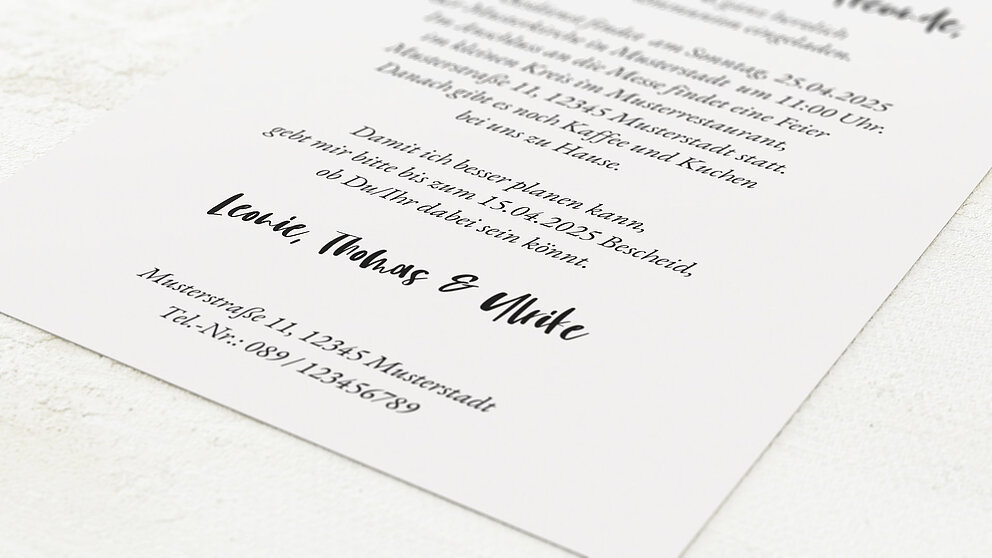 ganz herzlich
eingeladen.
findet am Sonntag, 25.04.2025
Musterkirche in Musterstadt um 11:00 Uhr.
Im Anschluss an die Messe findet eine Feier
im kleinen Kreis im Musterrestaurant,
Musterstraße 11, 12345 Musterstadt statt.
Danach gibt es noch Kaffee und Kuchen
bei uns zu Hause.
Damit ich besser planen kann,
gebt mir bitte bis zum 15.04.2025 Bescheid,
ob Du/Ihr dabei sein könnt.
Leonie, Thomas & Ulrike
Musterstraße 11, 12345 Musterstadt
Tel.-Nr.: 089 / 123456789